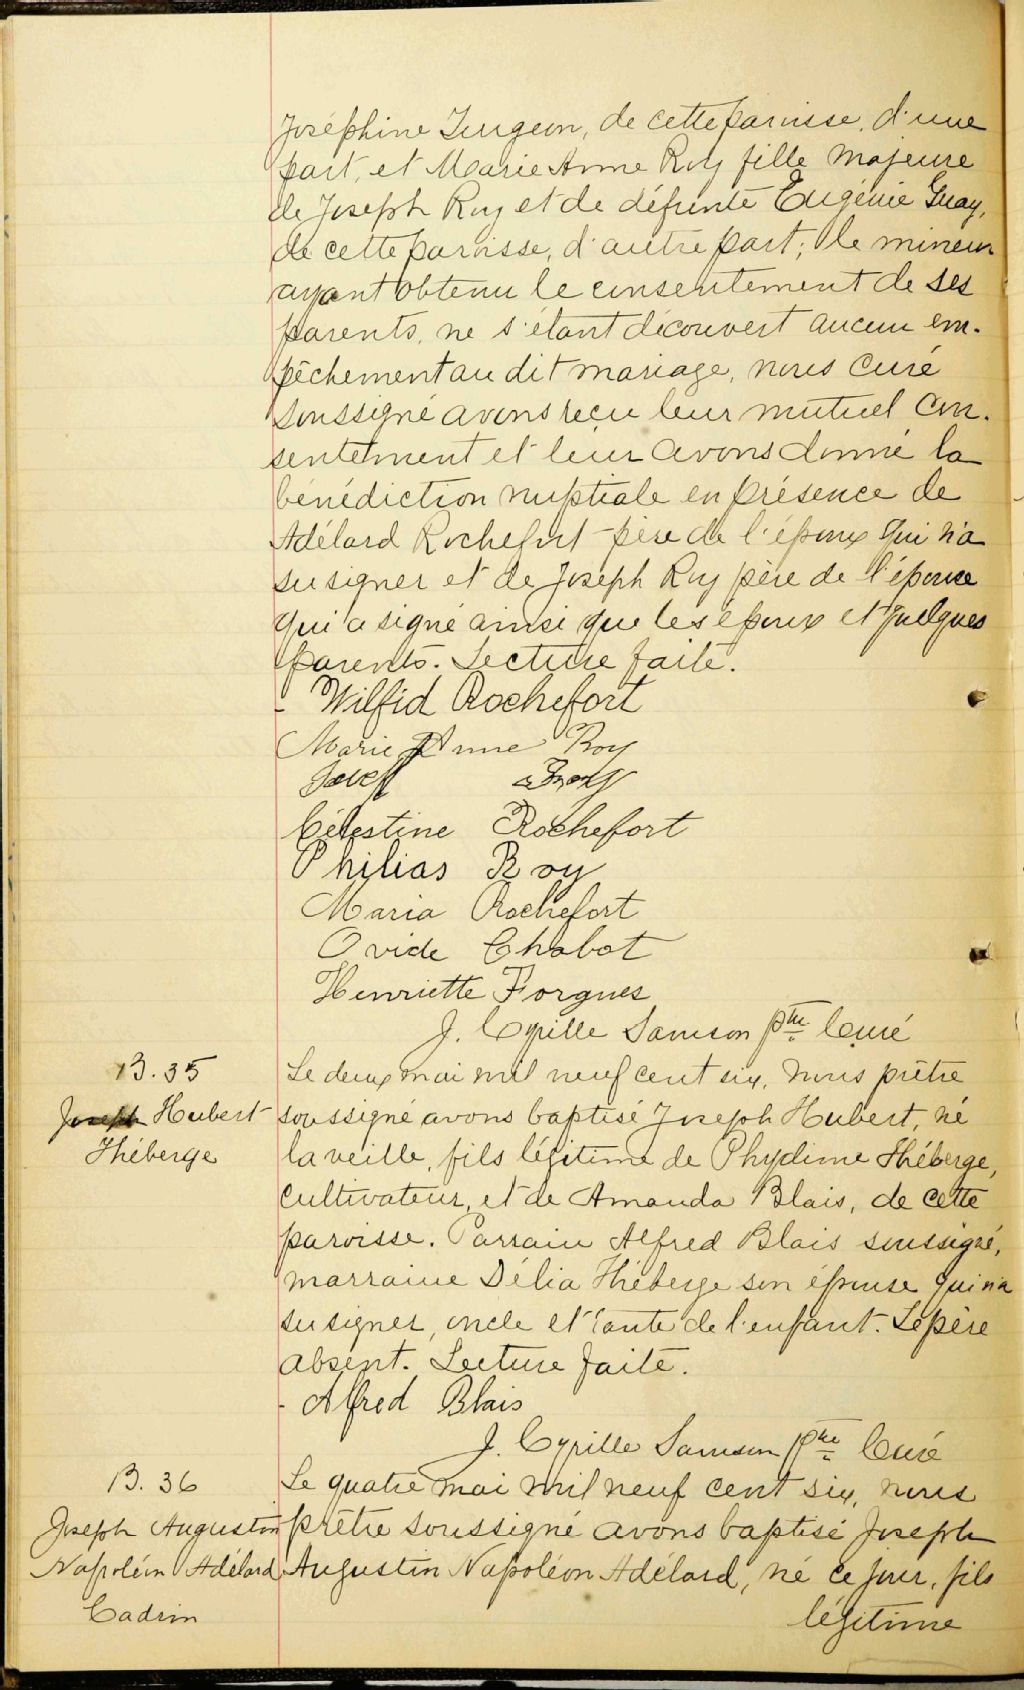 Joséphine Turgeon, de cette paroisse, d'une
part, et Marie Anne Roy fille majeure
de Joseph Roy et de défunte Eugénie Guay,
de cette paroisse, d'autre part; le mineur
ayant obtenu le consentement de ses
parents, ne s'étant découvert aucun em-
pêchement au dit mariage, nous Curé
soussigné avons reçu leur mutuel con-
sentement et leur avons donné la
bénédiction nuptiale en présence de
Adélard Rochefort père de l'époux qui n'a
su signer et de Joseph Roy père de l'épouse
qui a signé ainsi que les époux et quelques
parents. Lecture faite.
- Wilfid Rochefort
Marie Anne Roy
Roy
Célestine Rochefort
Philias Roy
Maria Rochefort
Ovide Chabot
Henriette Forgues
J. Cyrille Samson ptre Curé
B. 35
Joseph Hubert
Théberge
Le deux mai mil neuf cent six, nous prêtre
soussigné avons baptisé Joseph Hubert, né
la veille, fils légitime de Phydime Théberge,
cultivateur, et de Amanda Blais, de cette
paroisse. Parrain Alfred Blais soussigné,
marraine Délia Théberge son épouse qui n'a
su signer, oncle et tante de l'enfant. Le père
absent. Lecture faite.
- Alfred Blais
J. Cyrille Samson Ptre Curé
B. 36
Joseph Augustin
Napoléon Adélard
Cadrin
Le quatre mai mil neuf cent six, nous
prêtre soussigné avons baptisé Joseph
Augustin Napoléon Adélard, né ce jour, fils
légitime